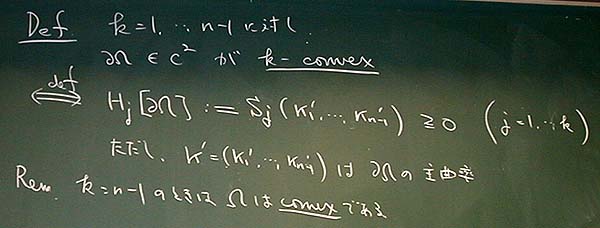 Def. k=1, …, n-1 に対し.
∂Ω ∈ C² が k-convex
⇔def H_j[∂Ω] := S_j(κ'_1, …, κ'_{n-1}) ≧ 0 (j=1, …, k)
ただし, κ'=(κ'_1, …, κ'_{n-1}) は ∂Ω の 主曲率
Rem. k=n-1 のときは Ω は convex である